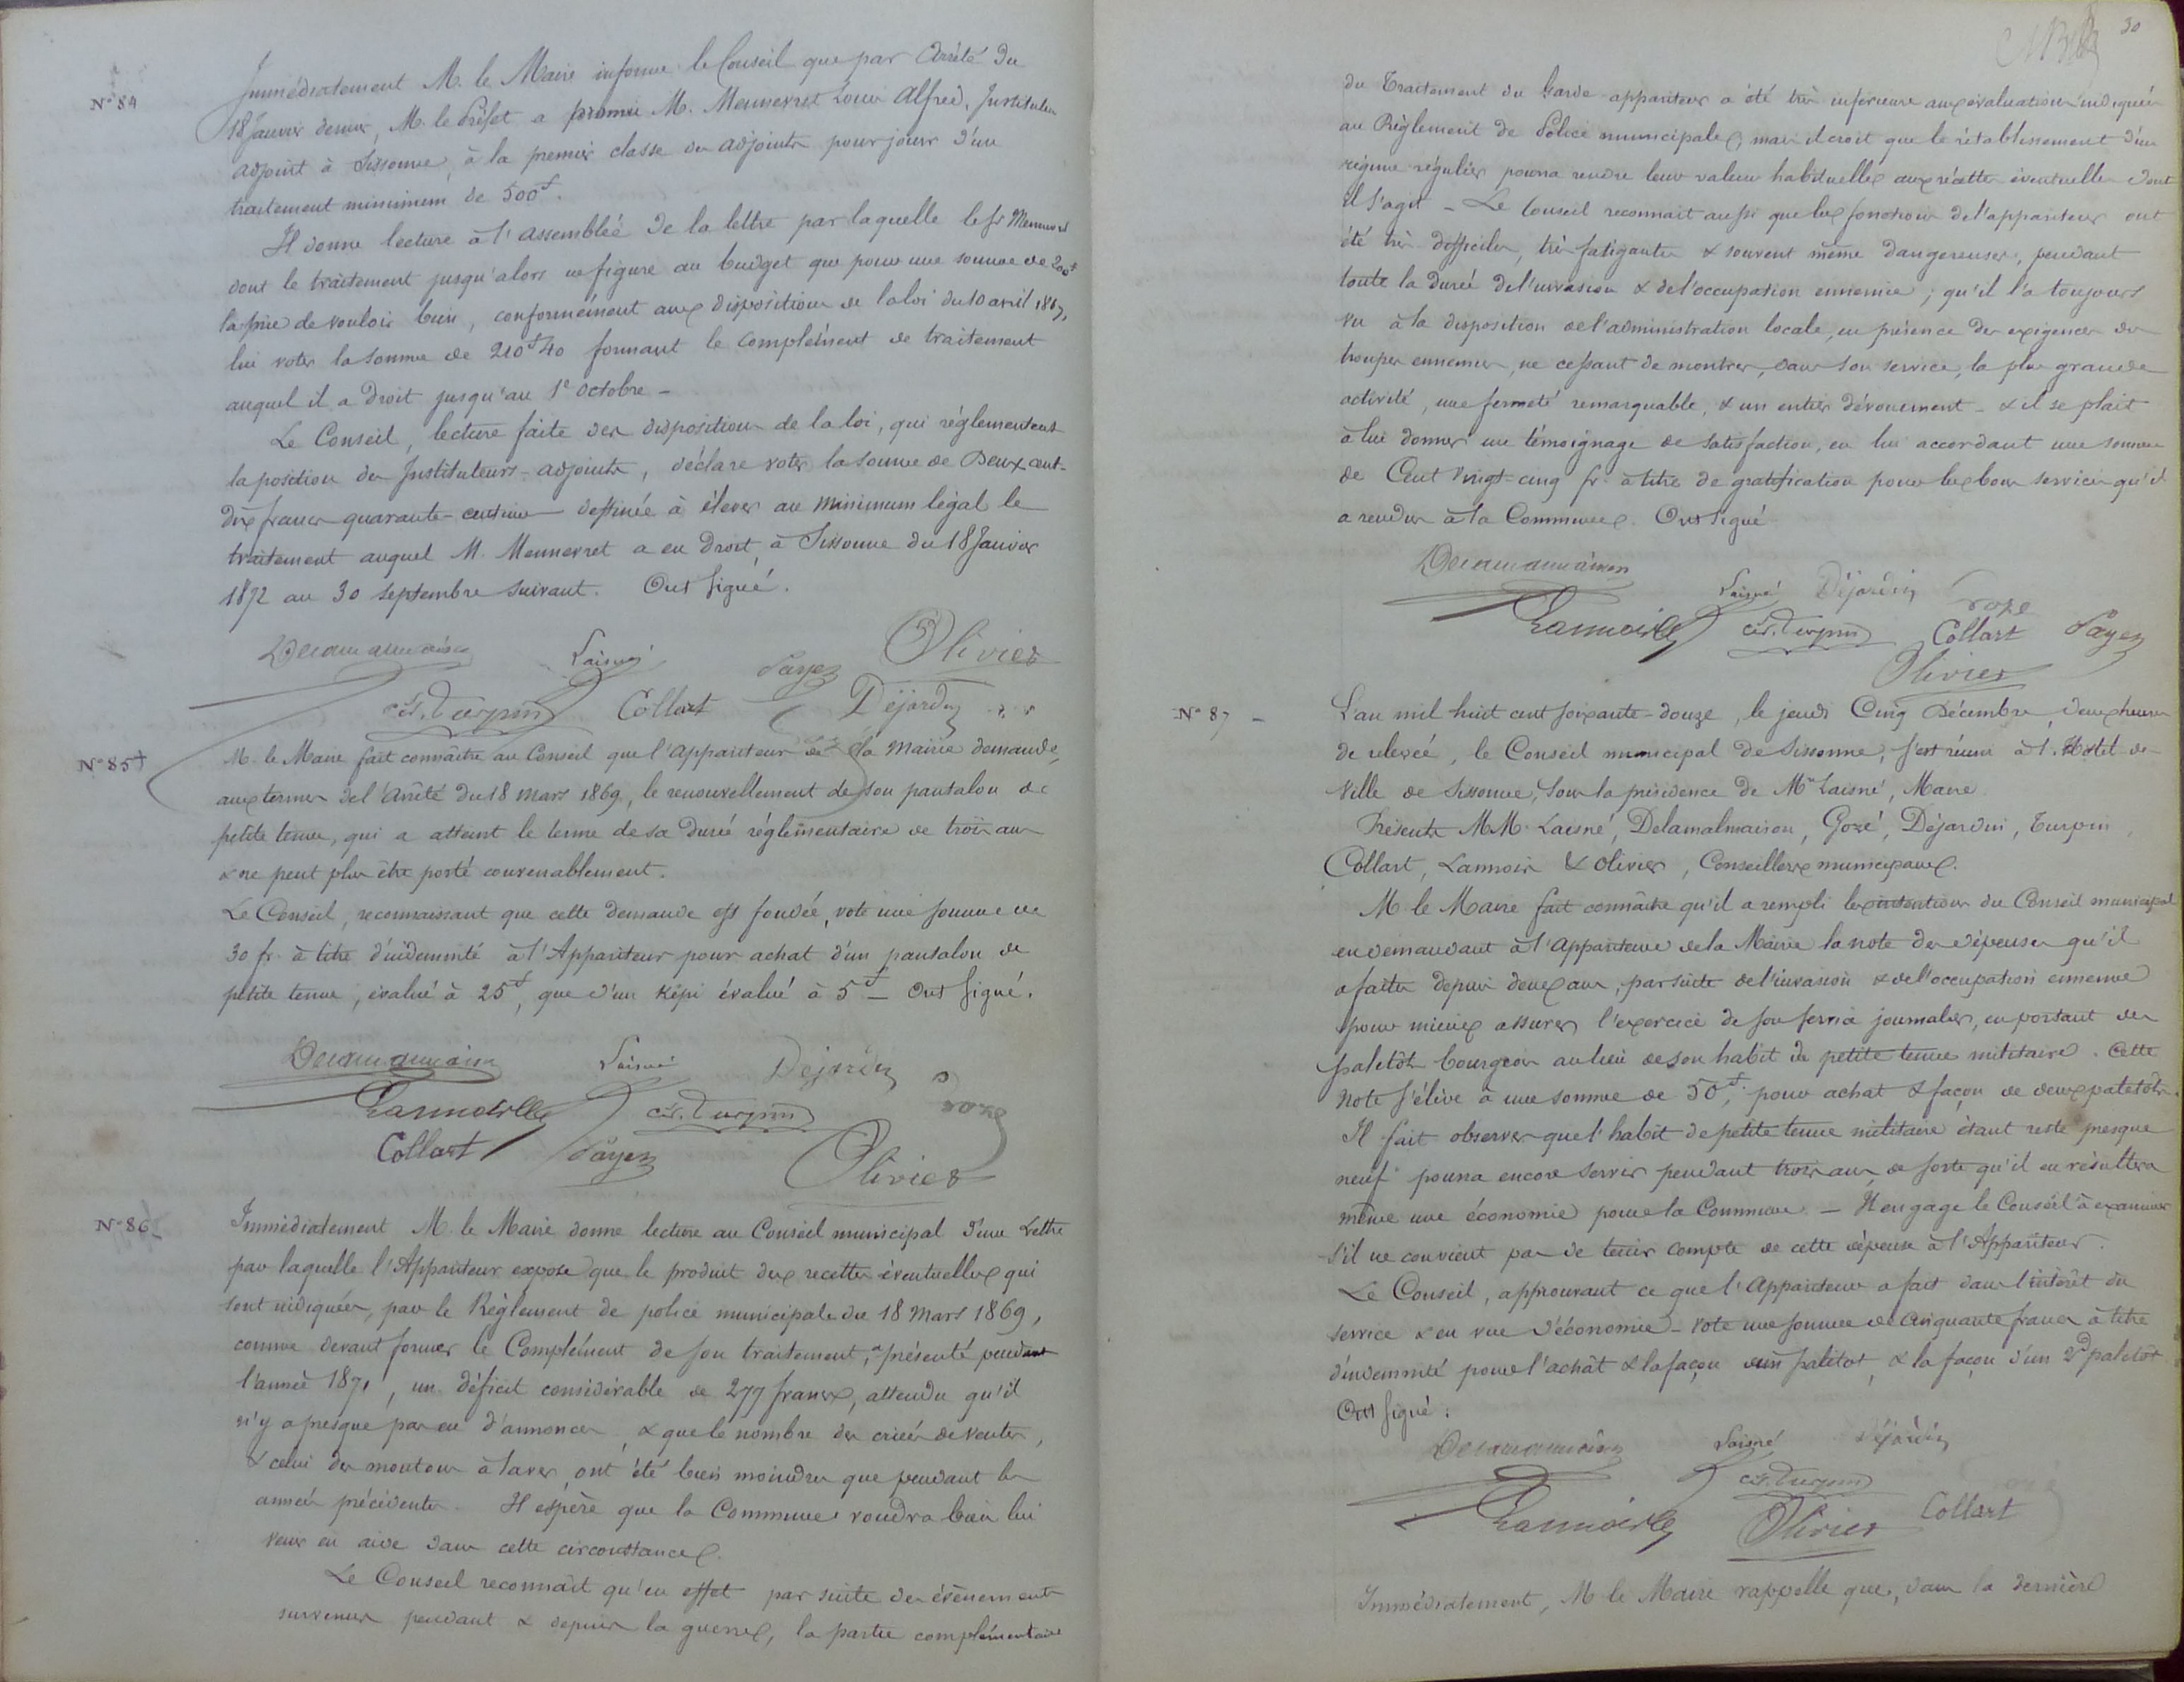 N° 84
Immédiatement M. le Maire informe le Conseil que par Arrêté du
18 Janvier dernier, M. le Préfet a promu M. Mennevret Louis Alfred, Instituteur
adjoint à Sissonne, à la premier classe des adjoints pour jouir d'un
traitement minimum de 500f.
Il donne lecture à l'assemblée de la lettre par laquelle le Sr Mennevret
dont le traitement jusqu'alors ne figure au budget que pour une somme de 200f
la prie de vouloir bien, conformément aux dispositions de la loi du 10 avril 1867,
lui voter la somme de 210f40 formant le complément de traitement
auquel il a droit jusqu'au 1e octobre -
Le Conseil, lecture faite des dispositions de la loi, qui réglementent
la position des Instituteurs-adjoints, déclare voter la somme de Deux cent-
dix francs quarante centimes destinée à élever au minimum légal le
traitement auquel M. Mennevret a eu droit à Sissonne du 18 Janvier
1872 au 30 septembre suivant. Ont signé.
Delamalmaison Laisné Payen Olivier
Turpin Collart Déjardin
N° 85
M. le Maire fait connaître au Conseil que l'Appariteur de la Mairie demande,
aux termes de l'Arrêté du 18 mars 1869, le renouvellement de son pantalon de
petite tenue, qui a atteint le terme de sa durée réglementaire de trois ans
& ne peut plus être porté convenablement.
Le Conseil, reconnaissant que cette demande est fondée, vote une somme de
30 fr. à titre d'indemnité à l'Appariteur pour achat d'un pantalon de
petite tenue, évalué à 25f, que d'un Képi évalué à 5f - Ont signé.
Delamalmaison Laisné Déjardin
Lannois Turpin Gozé
Collart Payen Olivier
N° 86
Immédiatement M. le Maire donne lecture au Conseil municipal d'une Lettre
par laquelle l'Appariteur expose que le produit des recettes éventuelles qui
sont indiquées, par le Règlement de police municipale du 18 Mars 1869,
comme devant former le Complément de son traitement, a présenté pendant
l'année 1871, un déficit considérable de 277 francs, attendu qu'il
n'y a presque pas eu d'annonces, & que le nombre des criées de ventes,
& celui des moutons à laver, ont été bien moindres que pendant les
années précédentes. Il espère que la Commune voudra bien lui
venir en aide dans cette circonstance.
Le Conseil reconnaît qu'en effet par suite des événements
survenus pendant & depuis la guerre, la partie complémentaire
30
du Traitement du Garde-appariteur a été très inférieure aux évaluations indiquées
au Règlement de Police municipale, mais il croit que le rétablissement d'un
régime régulier pourra rendre leur valeur habituelle aux recettes éventuelles dont
il s'agit - Le Conseil reconnaît aussi que les fonctions de l'appariteur ont
été très difficiles, très fatigantes & souvent même dangereuses, pendant
toute la durée de l'invasion & de l'occupation ennemie ; qu'il l'a toujours
vu à la disposition de l'administration locale, en présence des exigences des
troupes ennemies, ne cessant de montrer, dans son service, la plus grande
activité, une fermeté remarquable, & un entier dévouement - & il se plait
à lui donner un témoignage de satisfaction, en lui accordant une somme
de Cent vingt-cinq fr. à titre de gratification pour les bons services qu'il
a rendus à la Commune. Ont signé
Delamalmaison Laisné Déjardin Gozé
Lannois Turpin Collart Payen
Olivier
N° 87 -
L'an mil huit cent soixante-douze, le jeudi Cinq Décembre, deux heures
de relevée, le Conseil municipal de Sissonne, s'est réuni à l'Hôtel de
Ville de Sissonne, sous la présidence de Mr Laisné, Maire.
Présents MM. Laisné, Delamalmaison, Gozé, Déjardin, Turpin,
Collart, Lannois & Olivier, Conseillers municipaux.
M. le Maire fait connaître qu'il a rempli les intentions du Conseil municipal
en demandant à l'Appariteur de la Mairie la note des dépenses qu'il
a faites depuis deux ans, par suite de l'invasion & de l'occupation ennemie
pour mieux assurer l'exercice de son service journalier, en portant des
paletôts bourgeois au lieu de son habit de petite tenue militaire. Cette
note s'élève à une somme de 50f, pour achat & façon de deux paletots.
Il fait observer que l'habit de petite tenue militaire étant resté presque
neuf pourra encore servir pendant trois ans de sorte qu'il en résultera
même une économie pour la Commune. - Il engage le Conseil à examiner
s'il ne convient pas de tenir compte de cette dépense à l'Appariteur.
Le Conseil, approuvant ce que l'Appariteur a fait dans l'intérêt du
service & en vue d'économie - vote une somme de Cinquante francs à titre
d'indemnité pour l'achât & la façon d'un paletot, & la façon d'un 2d paletot
Ont signé :
Delamalmaison Laisné Déjardin
Turpin
Lannois Olivier Collart
Immédiatement, M. le Maire rappelle que, dans la dernière